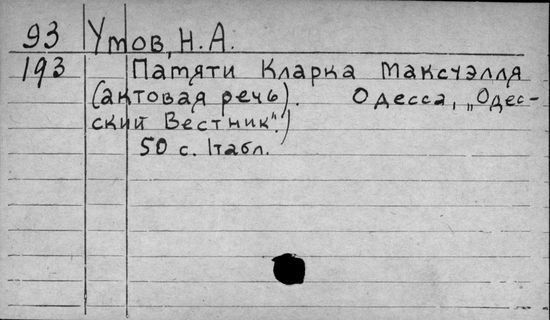 93 Умов, Н.А.
193 Памяти Кларка Максуэлля
(актовая речь). Одесса, „Одес-
ский Вестник".)
50 с. 1табл.